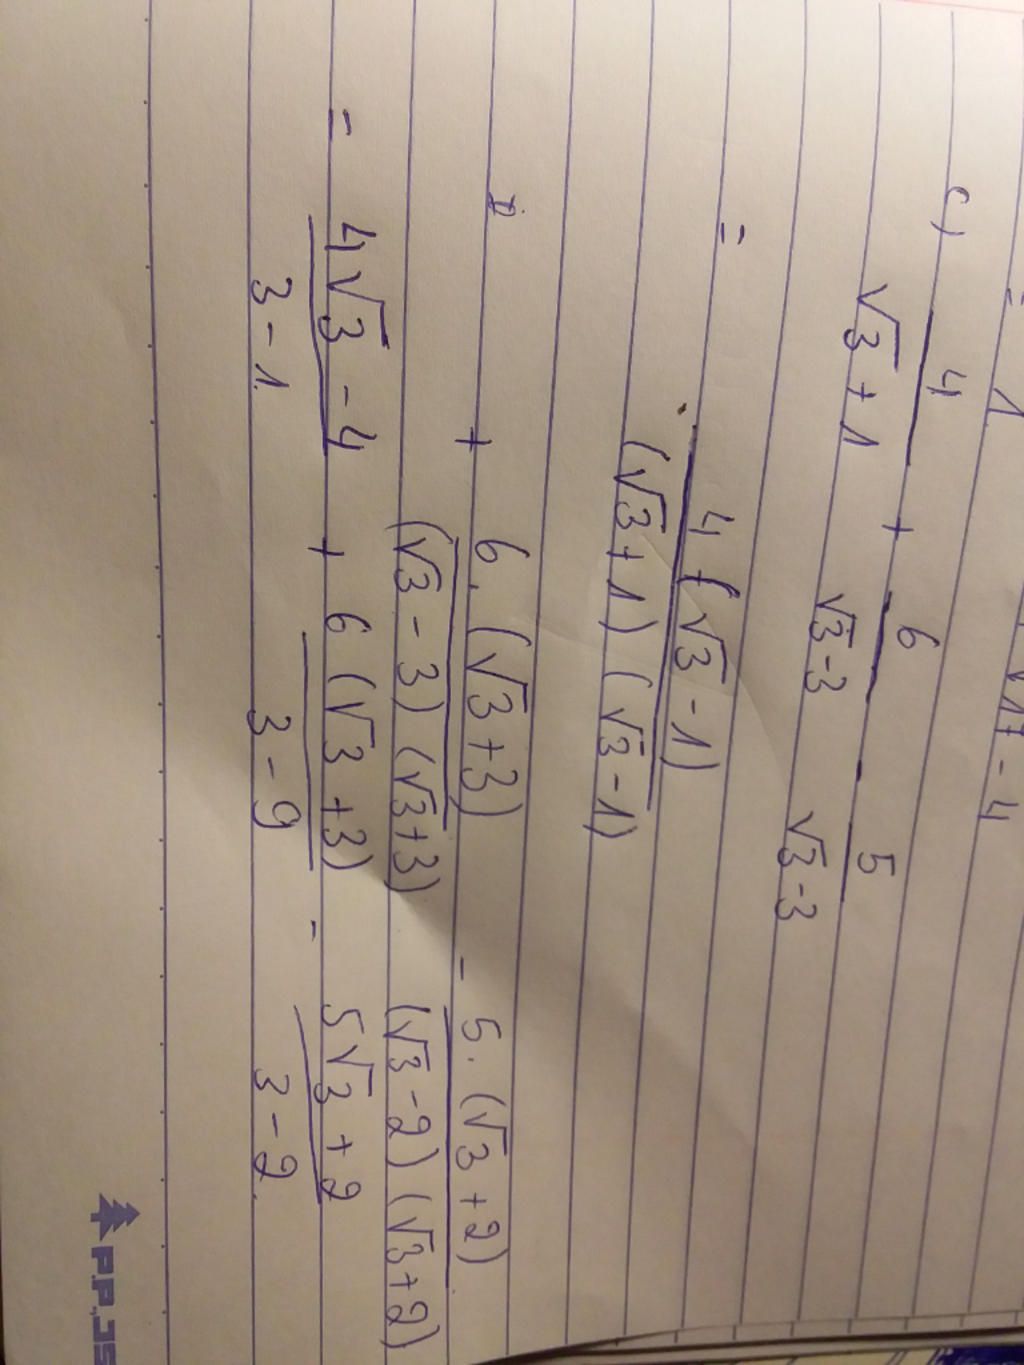 = 1 √17 - 4
c) 4/(√3 + 1) + 6/(√3 - 3) 5/(√3 - 3)
= 4 (√3 - 1)/((√3 + 1) (√3 - 1))
+ 6 . (√3 + 3)/((√3 - 3) (√3 + 3)) - 5 . (√3 + 2)/((√3 - 2) (√3 + 2))
= (4√3 - 4)/(3 - 1) + 6 (√3 + 3)/(3 - 9) - (5√3 + 2)/(3 - 2)